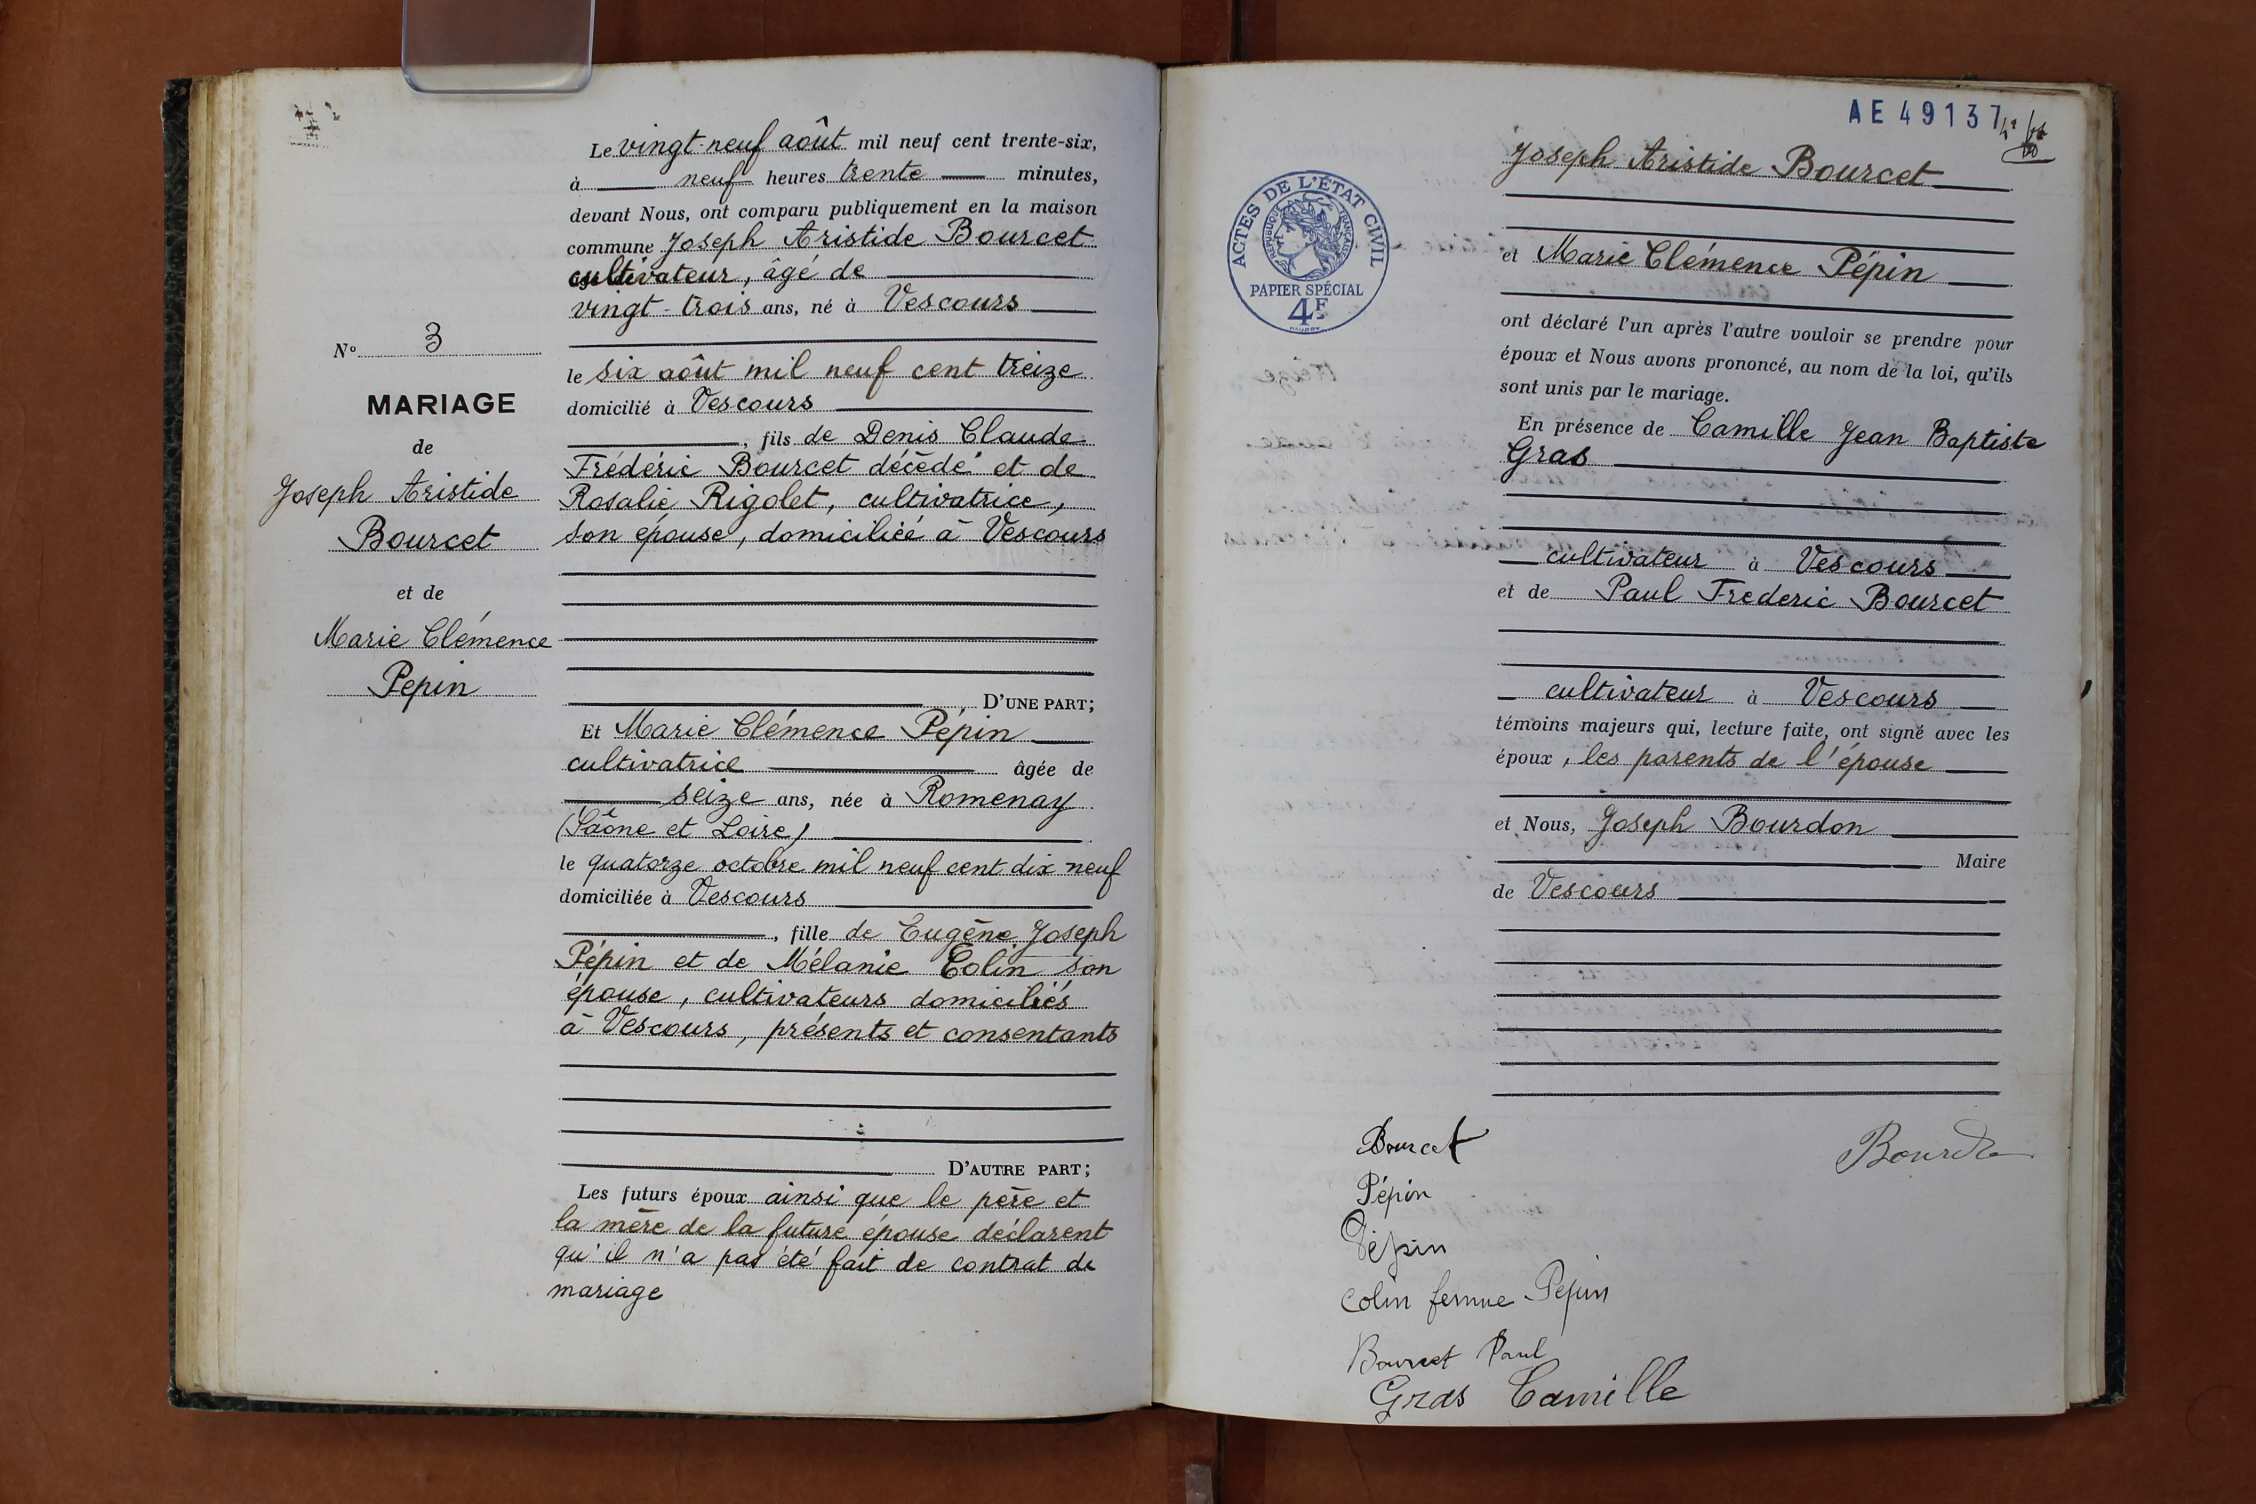 N° 3
MARIAGE
de
Joseph Aristide
Bourcet
et de
Marie Clémence
Pepin
Le vingt-neuf août mil neuf cent trente-six,
à neuf heures trente minutes,
devant Nous, ont comparu publiquement en la maison
commune Joseph Aristide Bourcet
cultivateur, âgé de
vingt-trois ans, né à Vescours
le six août mil neuf cent treize
domicilié à Vescours
, fils de Denis Claude
Frédéric Bourcet décédé et de
Rosalie Rigolet, cultivatrice,
son épouse, domiciliée à Vescours
, D'UNE PART;
Et Marie Clémence Pépin
cultivatrice âgée de
seize ans, née à Romenay
(Saône et Loire)
le quatorze octobre mil neuf cent dix neuf
domiciliée à Vescours
, fille de Eugène Joseph
Pépin et de Mélanie Colin son
épouse, cultivateurs domiciliés
à Vescours, présents et consentants
D'AUTRE PART;
Les futurs époux ainsi que le père et
la mère de la future épouse déclarent
qu'il n'a pas été fait de contrat de
mariage
AE 49137
ACTES DE L'ÉTAT CIVIL
RÉPUBLIQUE FRANÇAISE
PAPIER SPÉCIAL
4F
Joseph Aristide Bourcet
et Marie Clémence Pépin
ont déclaré l'un après l'autre vouloir se prendre pour
époux et Nous avons prononcé, au nom de la loi, qu'ils
sont unis par le mariage.
En présence de Camille Jean Baptiste
Gras
cultivateur à Vescours
et de Paul Frederic Bourcet
cultivateur à Vescours
témoins majeurs qui, lecture faite, ont signé avec les
époux, les parents de l'épouse
et Nous, Joseph Bourdon
Maire
de Vescours
Bourcet
Pépin
Pépin
Colin femme Pepin
Bourcet Paul
Gras Camille